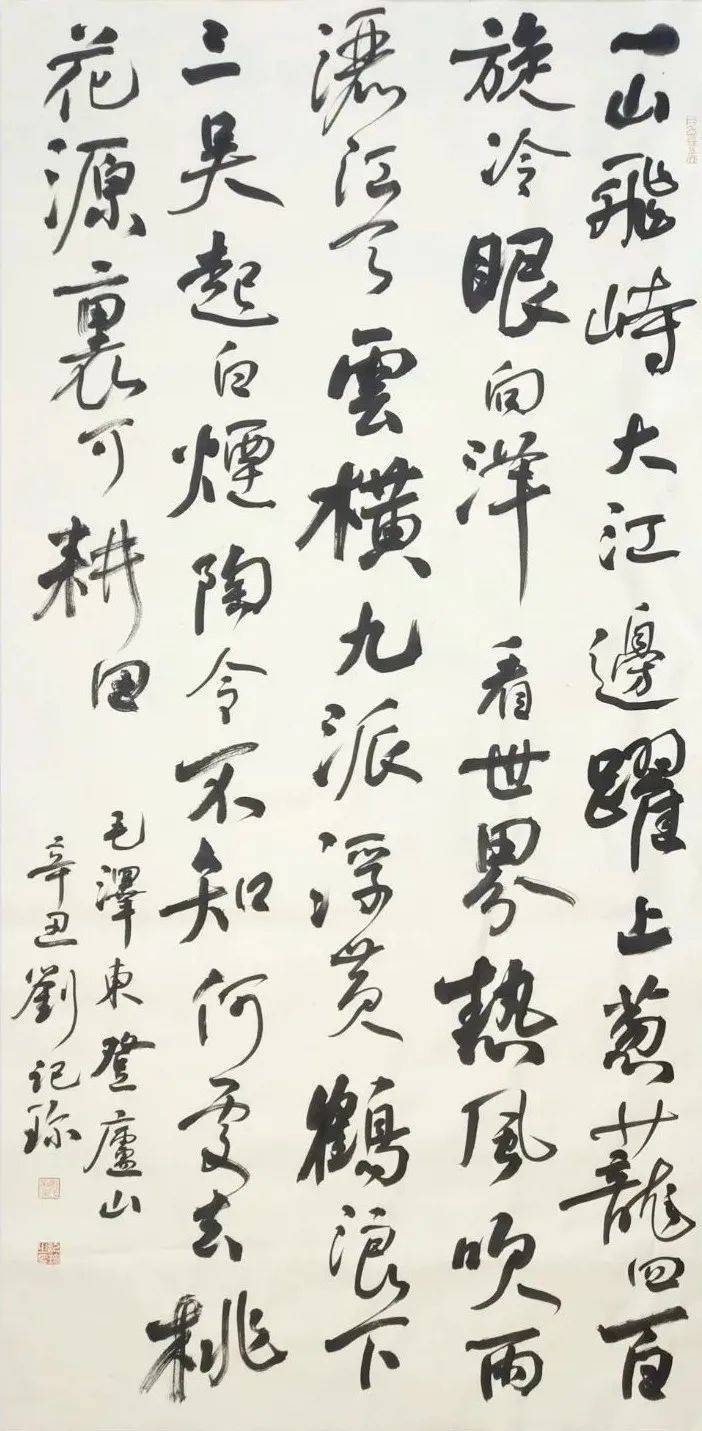 一山飛峙大江邊躍上葱蘢四百
旋冷眼向洋看世界熱風吹雨
灑江天雲橫九派浮黄鶴浪下
三吴起白煙陶令不知何處去桃
花源裏可耕田
毛澤東登廬山
辛丑劉記珎